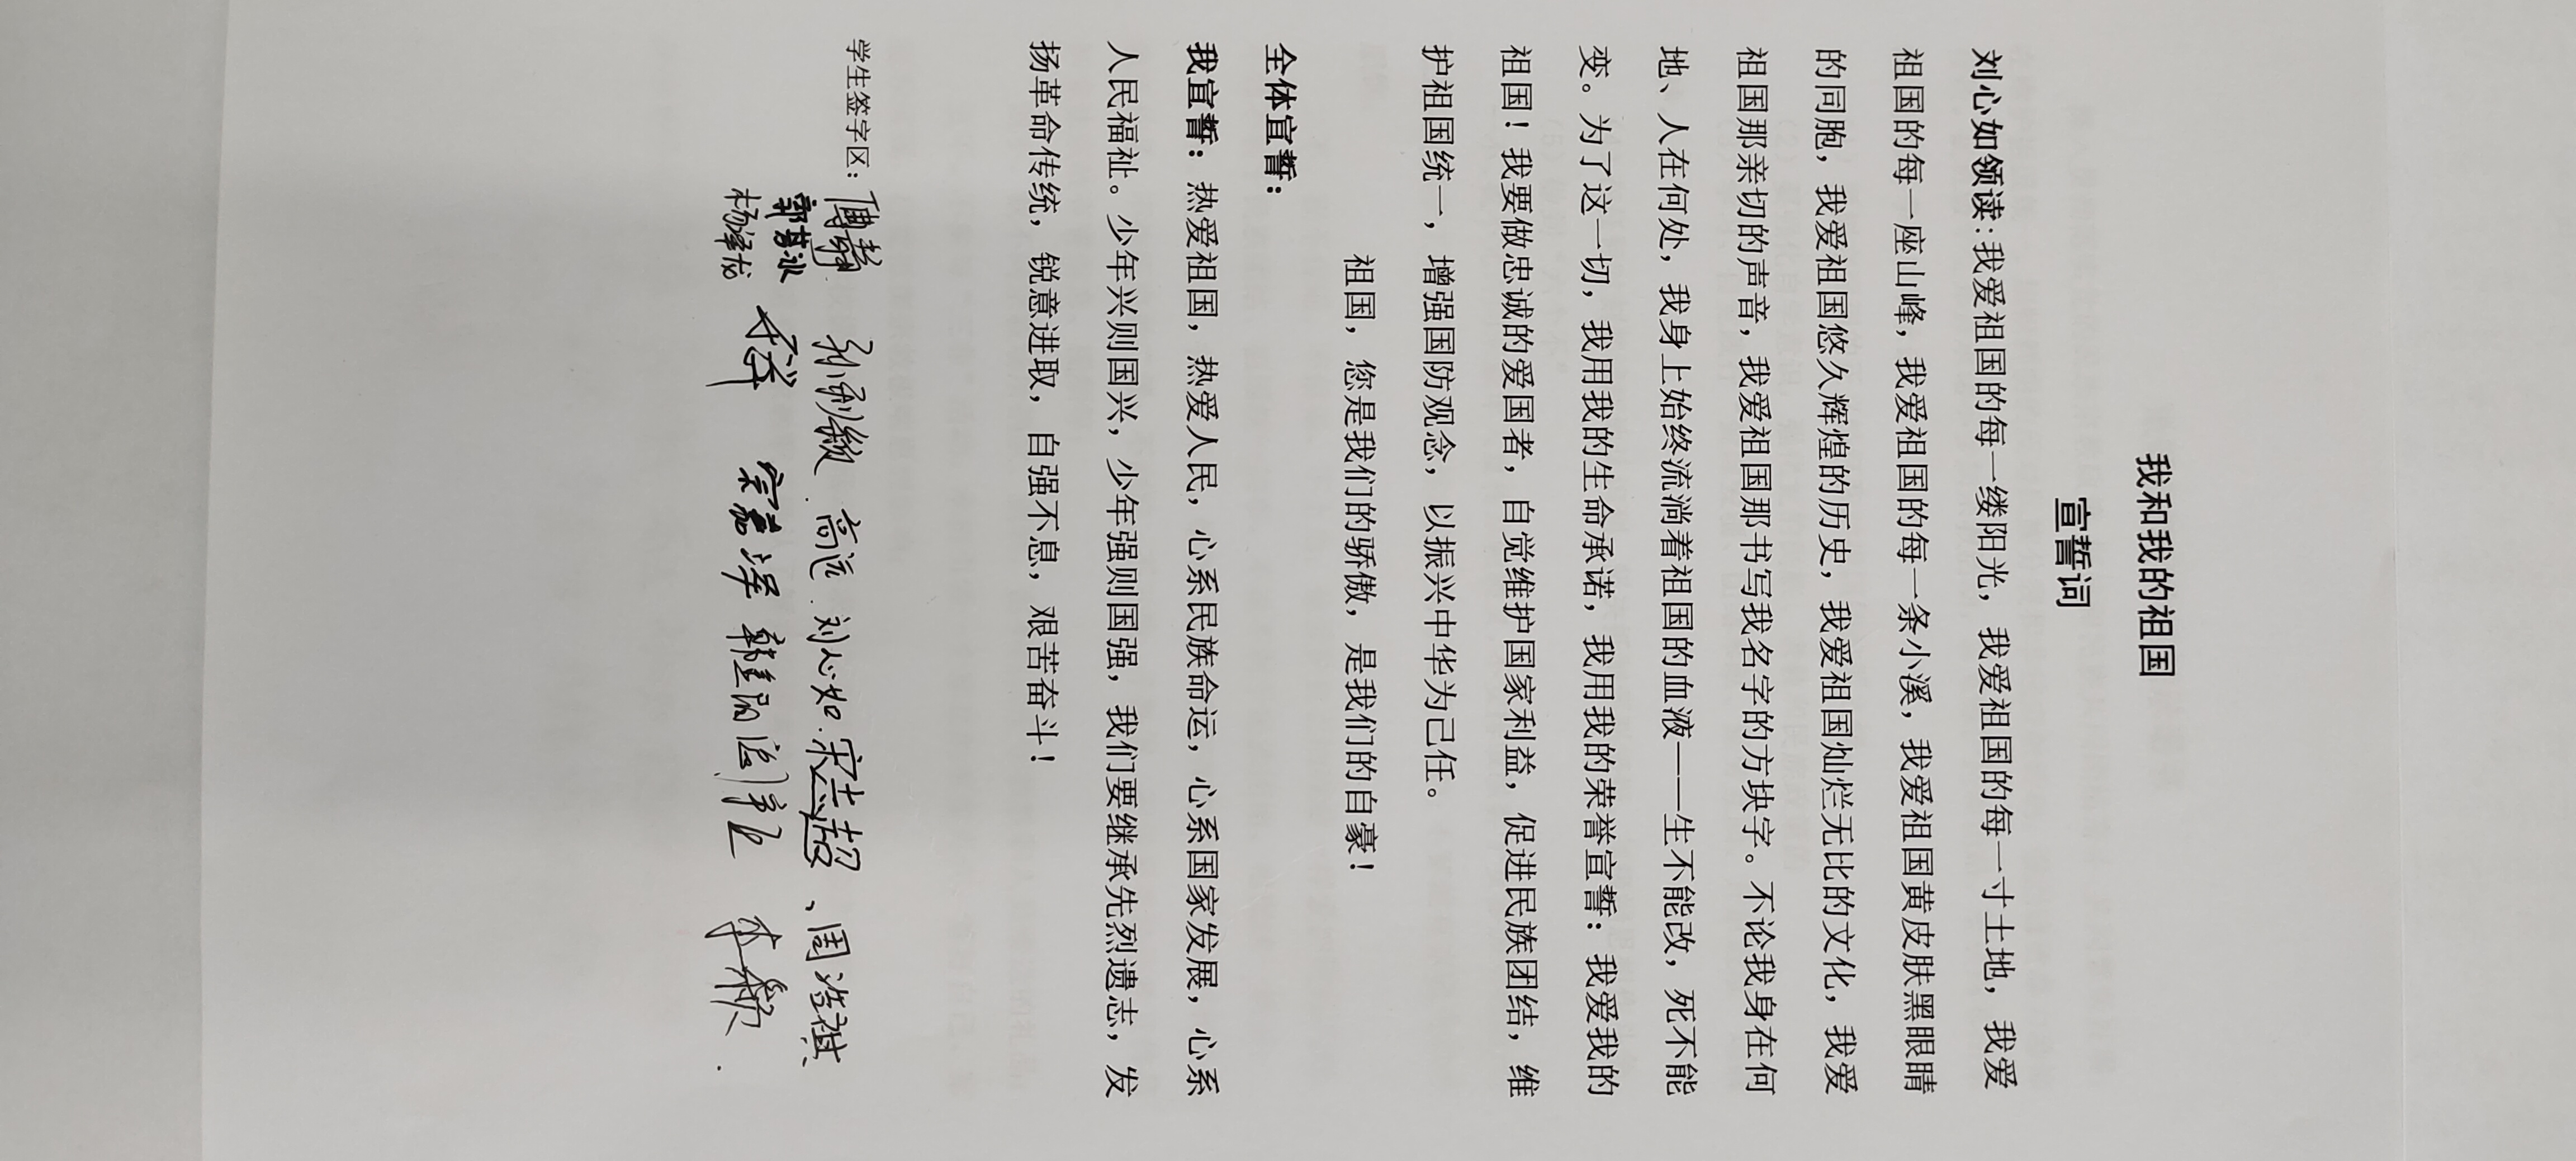 我和我的祖国
宣誓词
刘心如领读:我爱祖国的每一缕阳光，我爱祖国的每一寸土地，我爱
祖国的每一座山峰，我爱祖国的每一条小溪，我爱祖国黄皮肤黑眼睛
的同胞，我爱祖国悠久辉煌的历史，我爱祖国灿烂无比的文化，我爱
祖国那亲切的声音，我爱祖国那书写我名字的方块字。不论我身在何
地、人在何处，我身上始终流淌着祖国的血液——生不能改，死不能
变。为了这一切，我用我的生命承诺，我用我的荣誉宣誓：我爱我的
祖国！我要做忠诚的爱国者，自觉维护国家利益，促进民族团结，维
护祖国统一，增强国防观念，以振兴中华为己任。
祖国，您是我们的骄傲，是我们的自豪！
全体宣誓：
我宣誓：热爱祖国，热爱人民，心系民族命运，心系国家发展，心系
人民福祉。少年兴则国兴，少年强则国强，我们要继承先烈遗志，发
扬革命传统，锐意进取，自强不息，艰苦奋斗！
学生签字区：高远.刘心如.宋志超、周
杨泽龙